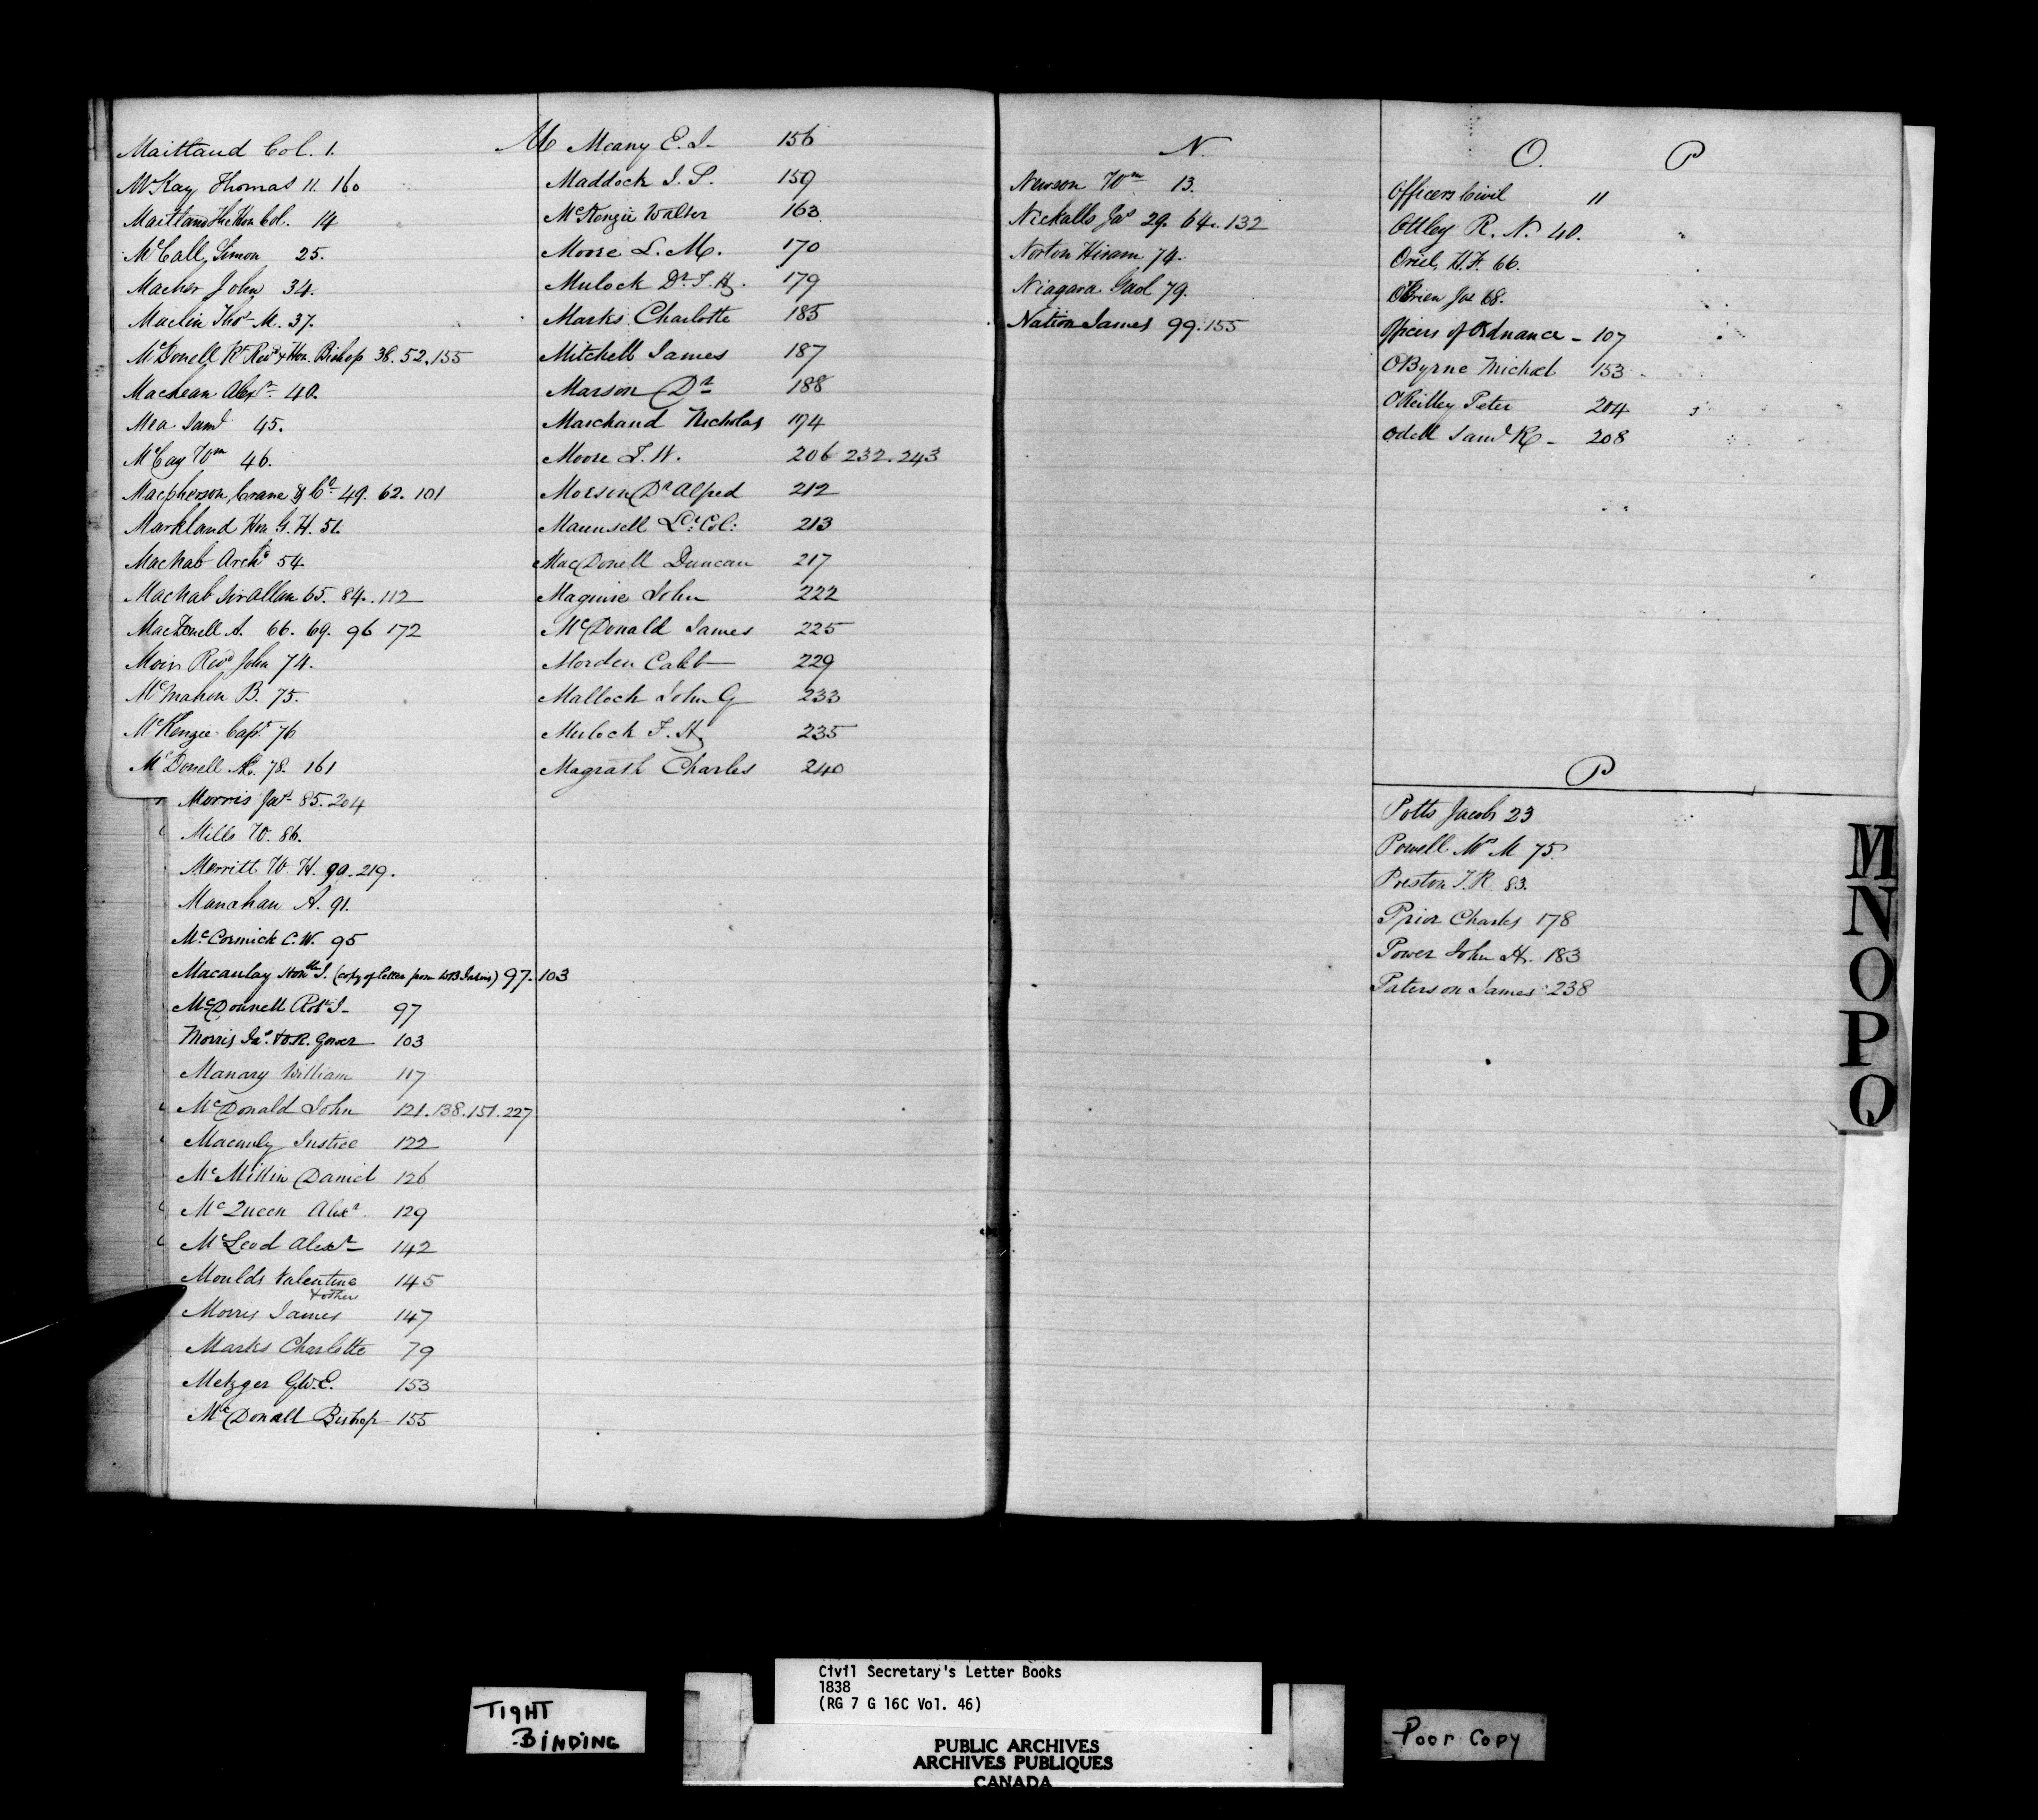 M
Maitland Col. 1.
McKay Thomas 11. 160
Maitland The Hon Col. 14
McCall, Simon 25.
Macher John 34.
Maclin Thos M. 37.
McDonell Rt Revd & Hon. Bishop 38. 52. 155
Macnean Alexr 40.
Mea Saml 45.
McCay Wm 46.
Macpherson, Crane & Co 49. 62. 101
Markland Hon G. H. 51.
Macnab Archd 54.
Macnab Sir Allan 65. 84. 112
MacDonell A. 66. 69. 96 172
Moir Revd John 74.
McMahon B. 75.
McKenzie Capt 76
McDonell A. 78. 161
Morris Jas 85. 204
Mills W. 86.
Merritt W. H. 90. 219.
Manahan A. 91.
McCormick C. W. 95
Macaulay Honble J. (copy of letter from W B Jarvis) 97. 103
McDonnell Robt J- 97
Morris Jas & R. Gower 103
Manary William 117
McDonald John 121. 138. 151. 227
Macauly Justice 122
McMillin Daniel 126
McQueen Alexr 129
McLeod Alexr 142
Moulds Valentine 145
& others
Morris James 147
Marks Charlotte 79
Metzger G. W. E. 153
McDonall Bishop 155
Meany E. J- 156
Maddock J. P. 159
McKenzie Walter 163
Moore L. M. 170
Mulock Dr T. H. 179
Marks Charlotte 185
Mitchell James 187
Marson Dr 188
Marchand Nicholas 194
Moore T. W. 206 232. 243
Morson Dr Alfred 212
Maunsell Lt Col: 213
MacDonell Duncan 217
Maguire John 222
McDonald James 225
Morden Caleb 229
Malloch John G 233
Mulock T. H. 235
Magrath Charles 240
N.
Newson Wm 13.
Nickalls Jas 29. 64. 132
Norton Hiram 74.
Niagara Gaol 79.
Nation James 99. 155
O. P
Officers Civil 11
Ottley R. N. 40.
Oriel, H. F. 66.
OBrien Jas 68.
Officers of Ordnance - 107
OByrne Michael 153
O'Reilley Peter 204
Odell Saml R - 208
P
Potts Jacob 23
Powell Mrs M 75
Preston T. R. 83.
Prior Charles 178
Power John H. 183
Paterson James 238
M
N
O
P
Q
TIGHT
BINDING
Civil Secretary's Letter Books
1838
(RG 7 G 16C Vol. 46)
PUBLIC ARCHIVES
ARCHIVES PUBLIQUES
CANADA
Poor Copy